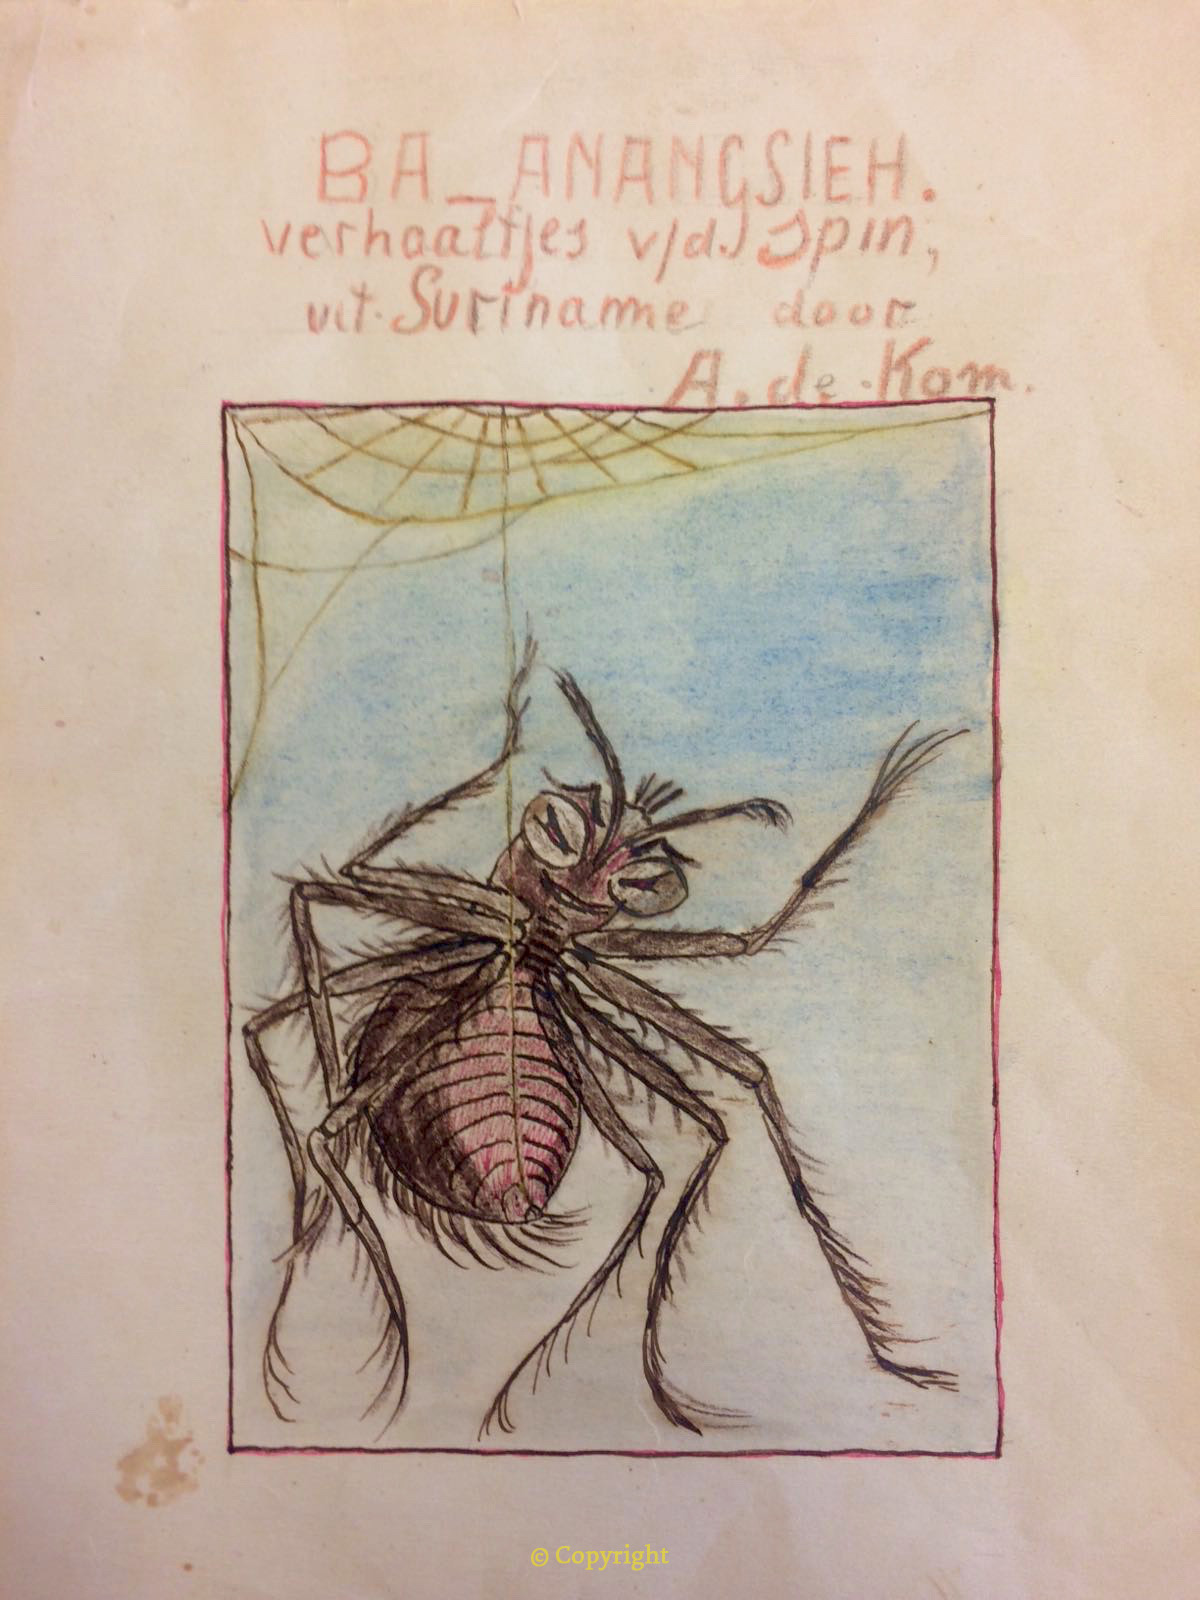 BA_ANANGSIEH.
verhaaltjes v/d. Spin,
uit. Suriname door
A. de. Kom.
© Copyright